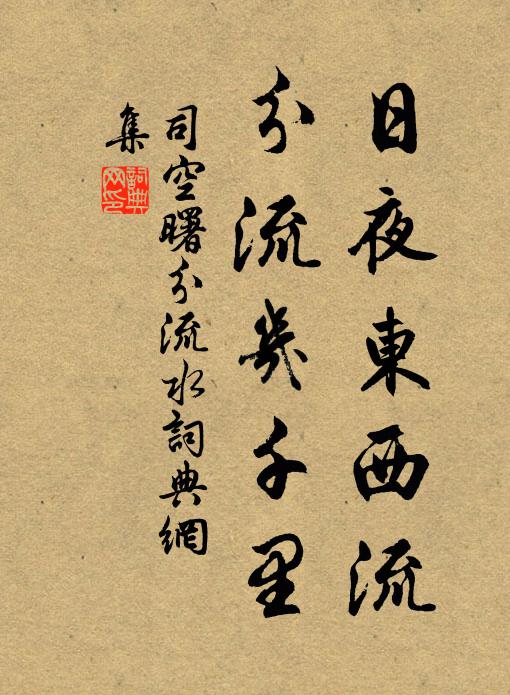 日夜東西流
分流幾千里
司空曙分流水詞典網
集
詞典
网印